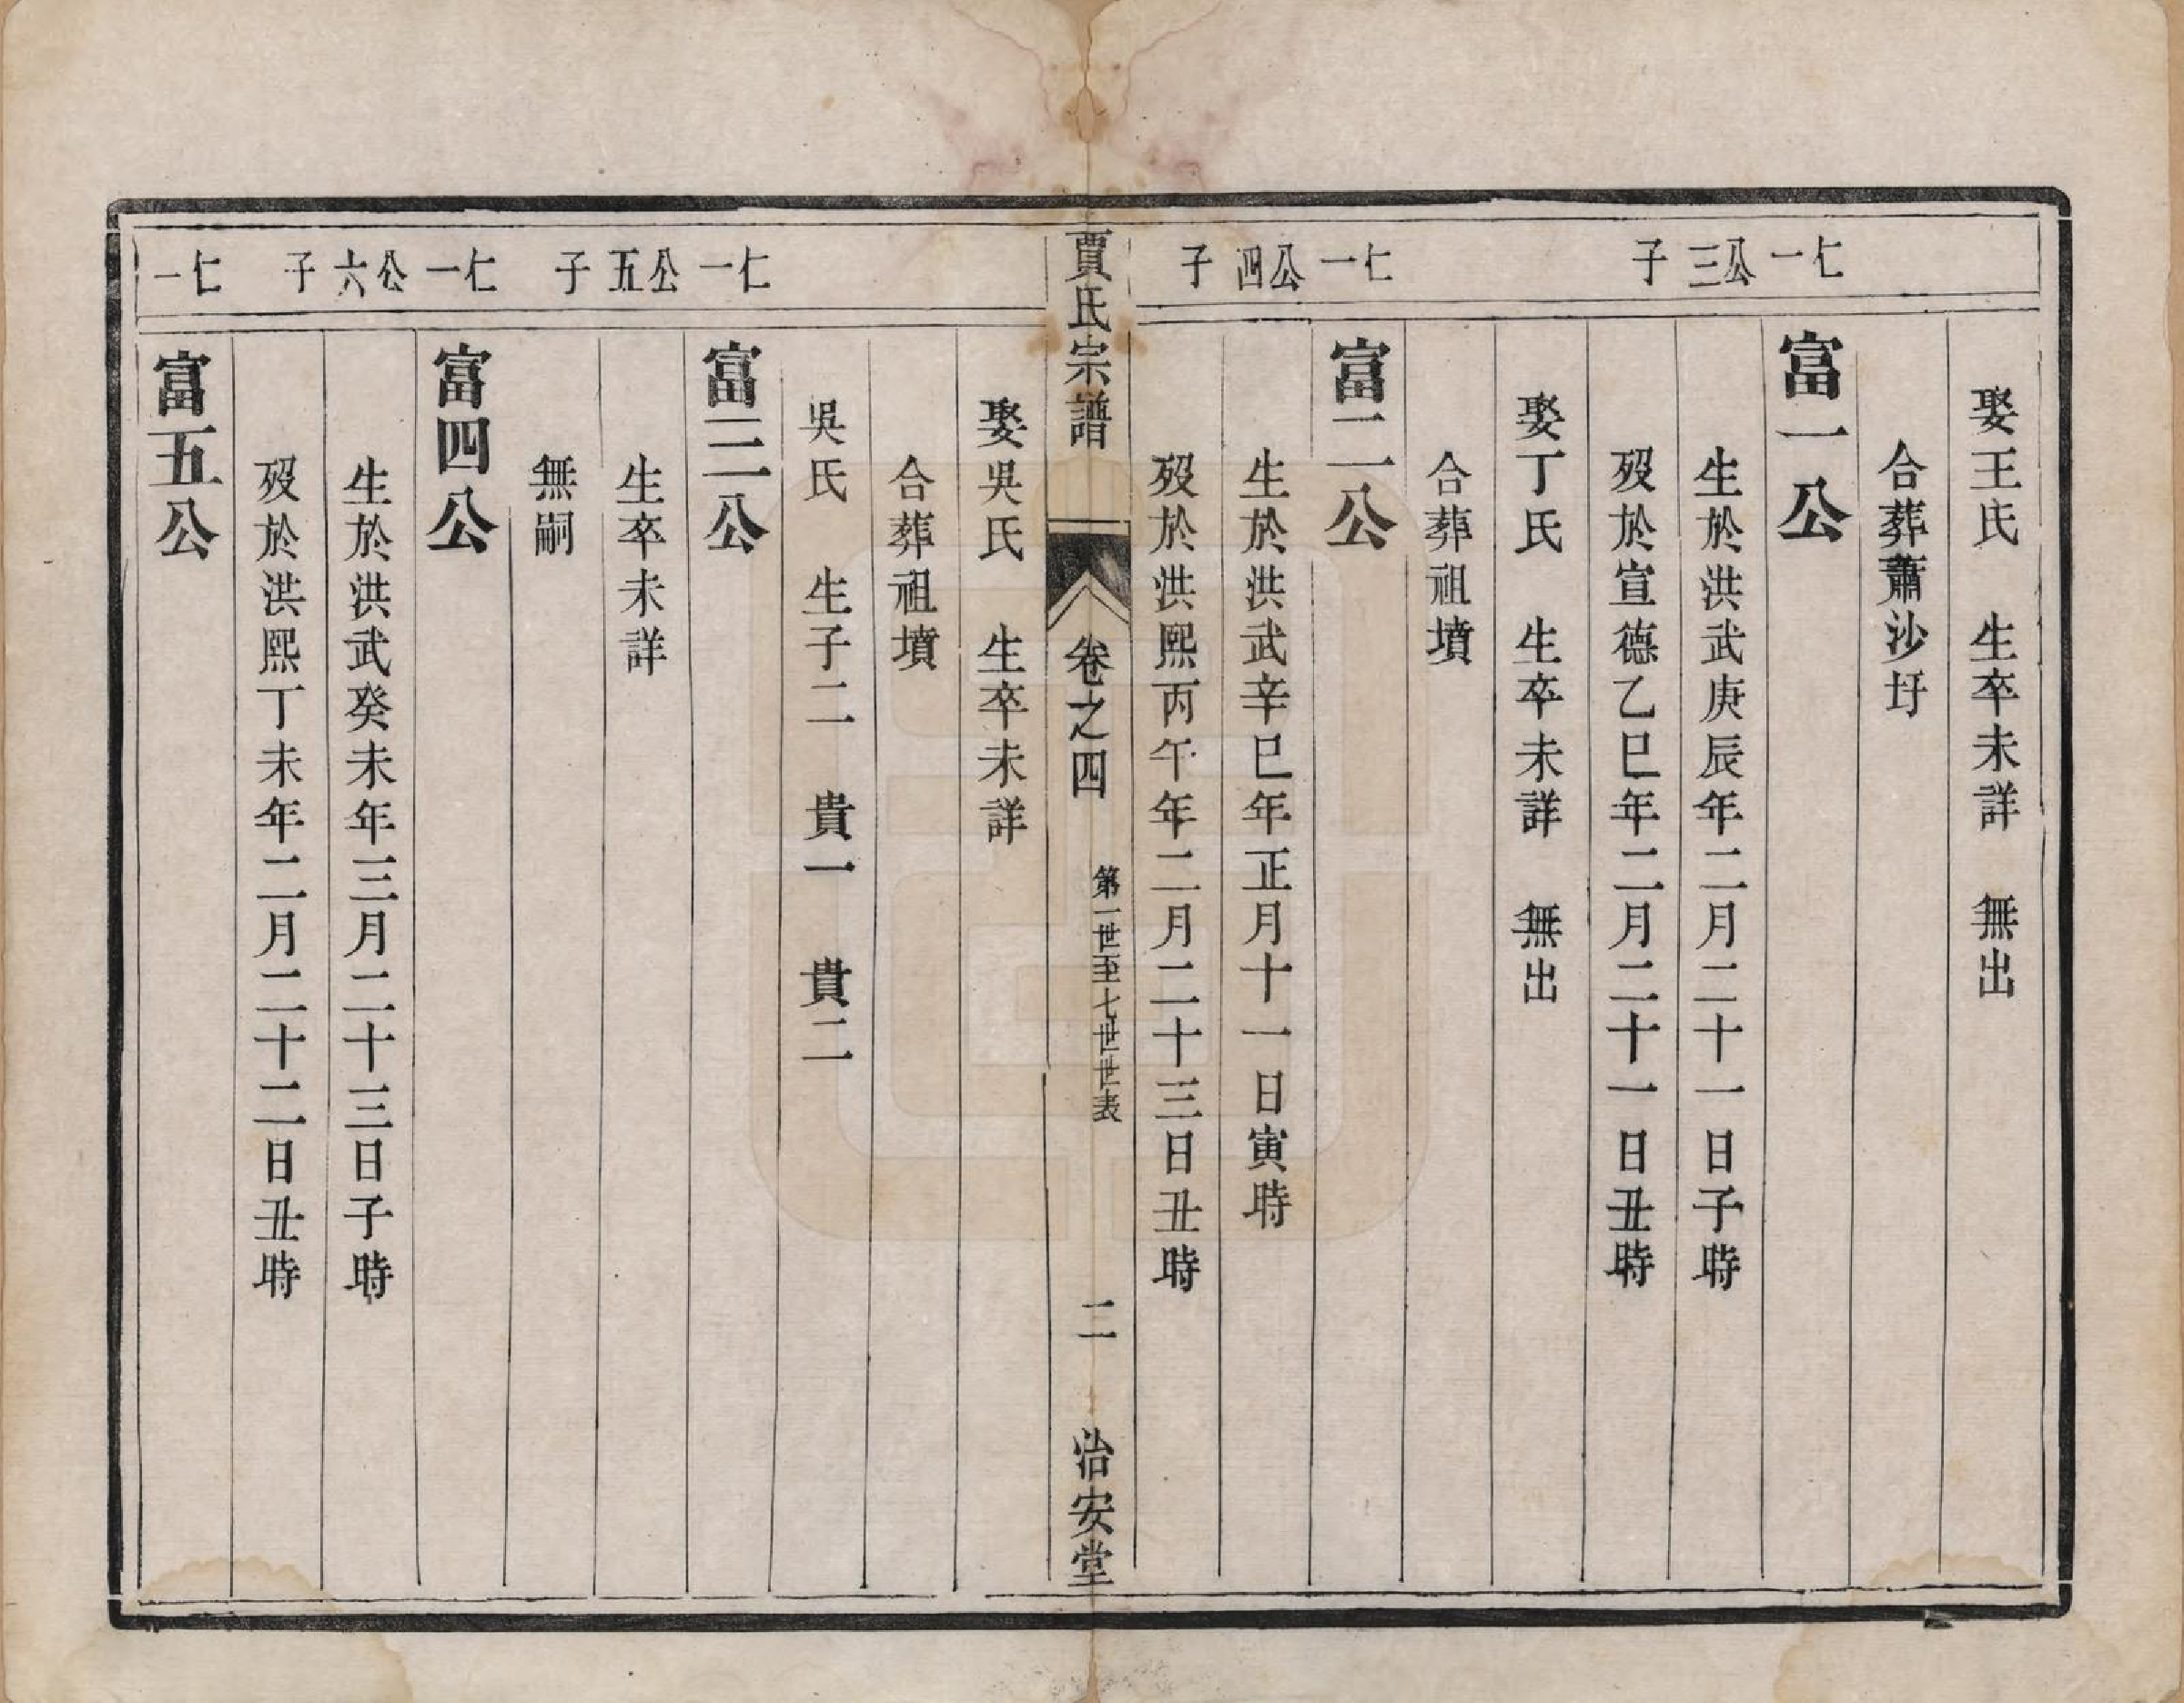 娶王氏　生卒未詳　無出
合葬蕭沙圩
仁一公三子
富一公
生於洪武庚辰年二月二十一日子時
歿於宣德乙巳年二月二十一日丑時
娶丁氏　生卒未詳　無出
合葬祖墳
仁一公四子
富二公
生於洪武辛巳年正月十一日寅時
歿於洪熙丙午年二月二十三日丑時
賈氏宗譜　卷之四　第一世至七世世表　二　治安堂
娶吳氏　生卒未詳
合葬祖墳
吳氏　生子二　貴一　貴二
仁一公五子
富三公
生卒未詳
無嗣
仁一公六子
富四公
生於洪武癸未年三月二十三日子時
歿於洪熙丁未年二月二十二日丑時
仁一
富五公